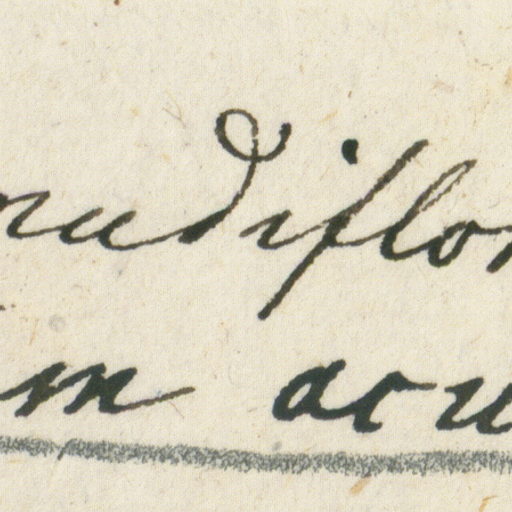 nudiflor
m acu